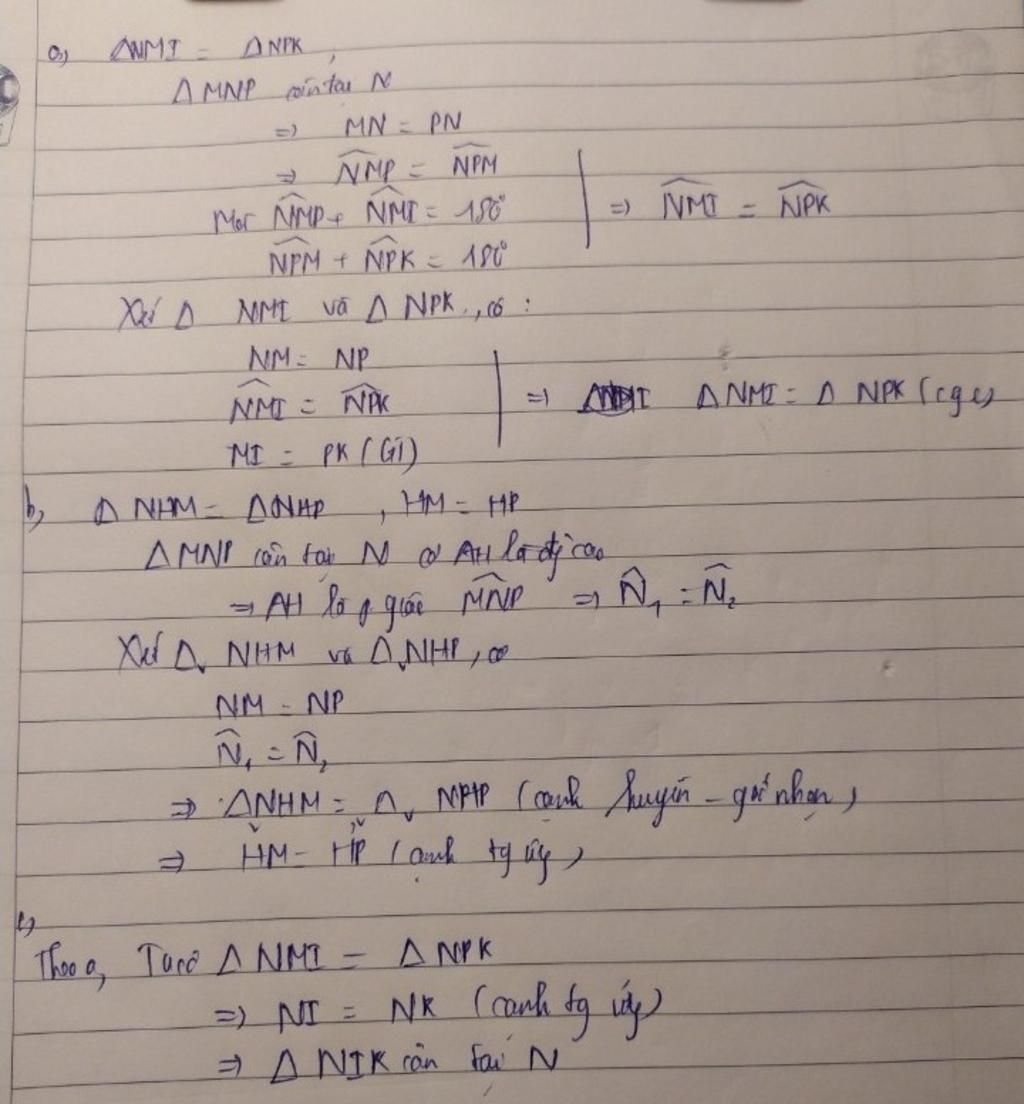 a, ΔNMI = ΔNPK,
ΔMNP cân tại N
=> MN = PN
=> \widehat{NMP} = \widehat{NPM}
Mặt \widehat{NMP} + \widehat{NMI} = 180° => \widehat{NMI} = \widehat{NPK}
\widehat{NPM} + \widehat{NPK} = 180°
Xét Δ NMI và Δ NPK, có :
NM = NP
\widehat{NMI} = \widehat{NPK} => ΔNMI = Δ NPK (cgc)
MI = PK (GT)
b, Δ NHM = ΔNHP , HM = HP
ΔMNP cân tại N có AH là đg cao
=> AH là p giác \widehat{MNP} => \widehat{N}₁ = \widehat{N}₂
Xét Δv NHM và ΔvNHP, có
NM = NP
\widehat{N}₁ = \widehat{N}₂
=> ΔvNHM = Δv NHP (cạnh huyền - góc nhọn)
=> HM = HP (cạnh tg ứg)
c,
Theo a, Ta có Δ NMI = Δ NPK
=> NI = NK (cạnh tg ứg)
=> Δ NIK cân tại N